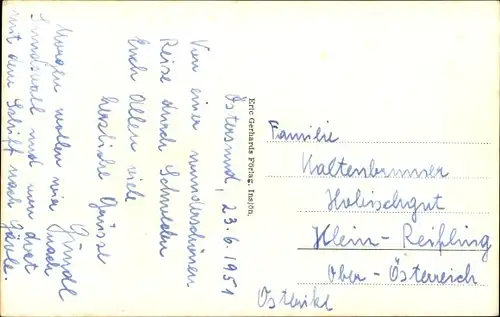 Östersund, 23.6.1951
Von einer wunderschönen
Reise durch Schweden
Euch Allen viele
herzliche Grüsse
Gündl
Morgen wollen wir nach
Sundsvall und von dort
mit dem Schiff nach Gävle.
Eric Gerhards Förlag, Insjön.
Familie
Kaltenbrunner
Holischgut
Klein-Reifling
Ober-Österreich
Österrike